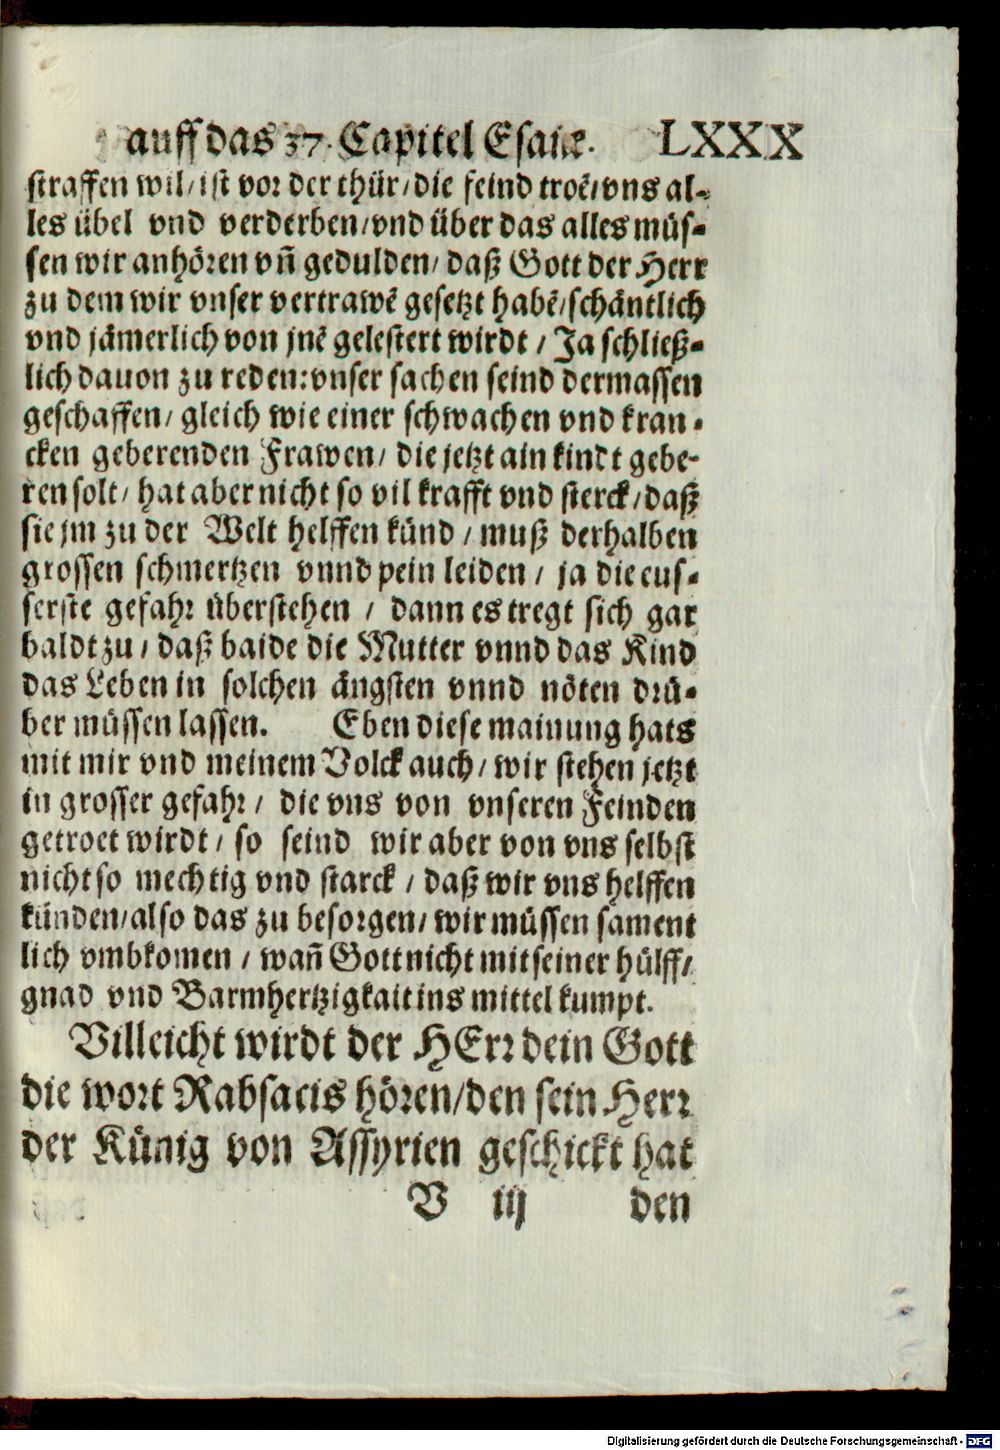 auff das 37. Capitel Esaiæ. LXXX
straffen wil/ist vor der thür/die feind troẽ/vns al-
les übel vnd verderben/vnd über das alles müs-
sen wir anhören vñ gedulden/daß Gott der Herr
zu dem wir vnser vertrawẽ gesetzt habẽ/schäntlich
vnd jämerlich von jnẽ gelestert wirdt/Ja schließ-
lich dauon zu reden:vnser sachen seind dermassen
geschaffen/gleich wie einer schwachen vnd kran-
cken geberenden Frawen/die jetzt ain kindt gebe-
ren solt/hat aber nicht so vil krafft vnd sterck/daß
sie jm zu der Welt helffen künd/muß derhalben
grossen schmertzen vnnd pein leiden/ja die eus-
serste gefahr überstehen/dann es tregt sich gar
baldt zu/daß baide die Mutter vnnd das Kind
das Leben in solchen ängsten vnnd nöten drü-
ber müssen lassen. Eben diese mainung hats
mit mir vnd meinem Volck auch/wir stehen jetzt
in grosser gefahr/die vns von vnseren Feinden
getroet wirdt/so seind wir aber von vns selbst
nicht so mechtig vnd starck/daß wir vns helffen
künden/also das zu besorgen/wir müssen sament
lich vmbkomen/wañ Gott nicht mit seiner hülff/
gnad vnd Barmhertzigkait ins mittel kumpt.
Villeicht wirdt der HErr dein Gott
die wort Rabsacis hören/den sein Herr
der Künig von Assyrien geschickt hat
V iij den
Digitalisierung gefördert durch die Deutsche Forschungsgemeinschaft - DFG